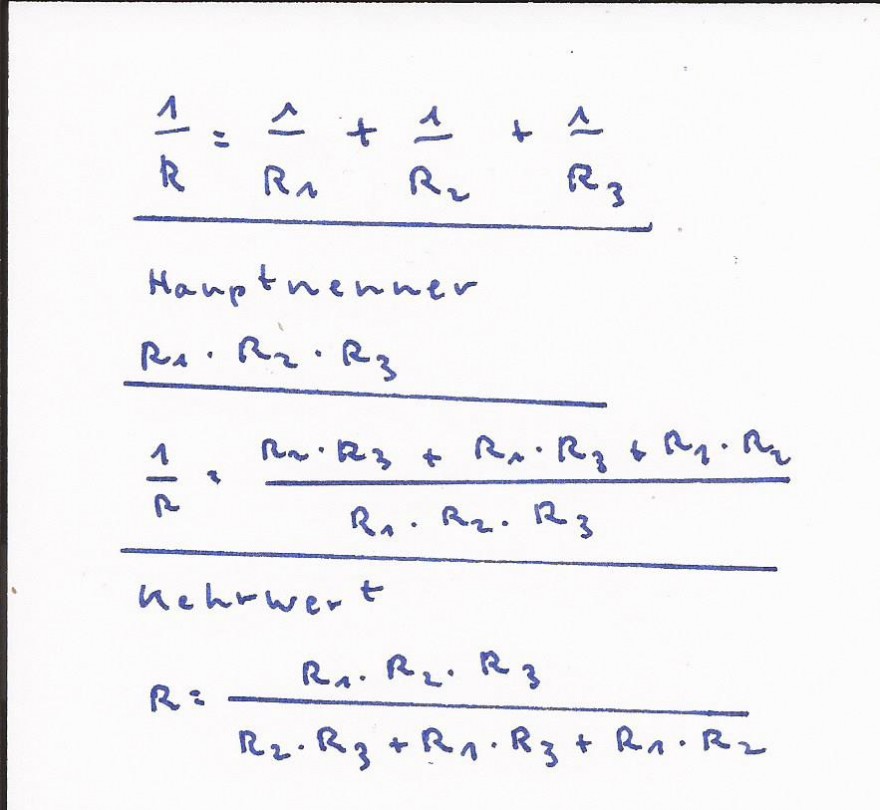 1/R = 1/R1 + 1/R2 + 1/R3
Hauptnenner
R1 · R2 · R3
1/R = (R2 · R3 + R1 · R3 + R1 · R2) / (R1 · R2 · R3)
Kehrwert
R = (R1 · R2 · R3) / (R2 · R3 + R1 · R3 + R1 · R2)